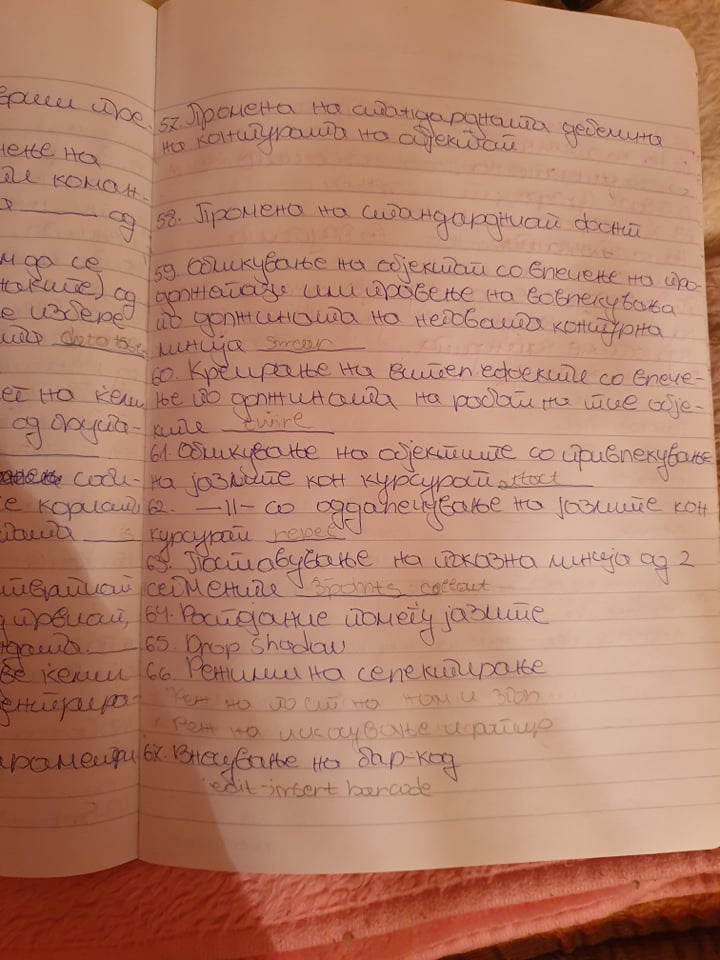 ерши пре-
нење на
ти коман-
од
м да се
њаките) од
е избере
data base
ет на кели
од друга-
соби-
е кормат,
дата s
твртиот
д првиот,
ндата
ве кели
центрира-
араметри
57. Промена на стандардната дебелина
на контурата на објектот
58. Промена на стандардниот фонт
59. Обликување на објектот со влечење на про-
должетоци или правење на вовлекувања
по должината на неговата контурна
линија smear
60. Креирање на вител ефекти со влече-
ње по должината на работ на тие обје-
кти twirl
61. Обликување на објектите со привлекување
на јазлите кон курсорот attact
62. —||— со оддалечување на јазлите кон
курсорот repel
63. Поставување на показна линија од 2
сегменти 3points callout
64. Растојание помеѓу јазлите
65. Drop shadau
66. Режими на селектирање
Реж на лост на
Реж на
67. Внесување на бар-код
edit-insert barcode